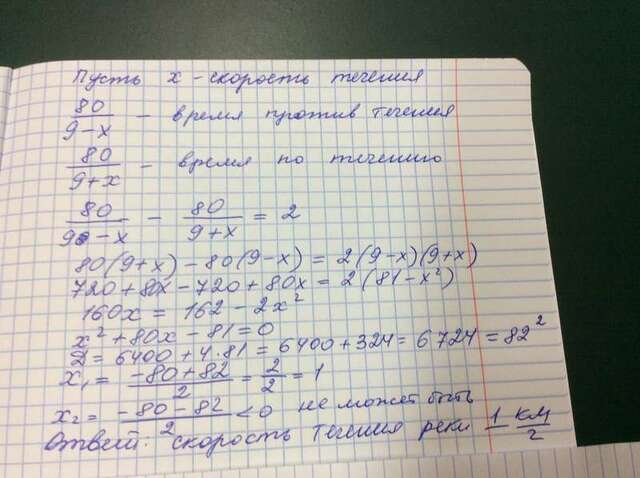 Пусть x – скорость течения
80/(9-x) – время против течения
80/(9+x) – время по течению
80/(9-x) - 80/(9+x) = 2
80(9+x) - 80(9-x) = 2(9-x)(9+x)
720+80x-720+80x = 2(81-x²)
160x = 162 - 2x²
x²+80x-81=0
D=6400+4·81=6400+324=6724=82²
x₁= (-80+82)/2 = 2/2 = 1
x₂= (-80-82)/2 <0 не может быть
Ответ: скорость течения реки 1 км/г